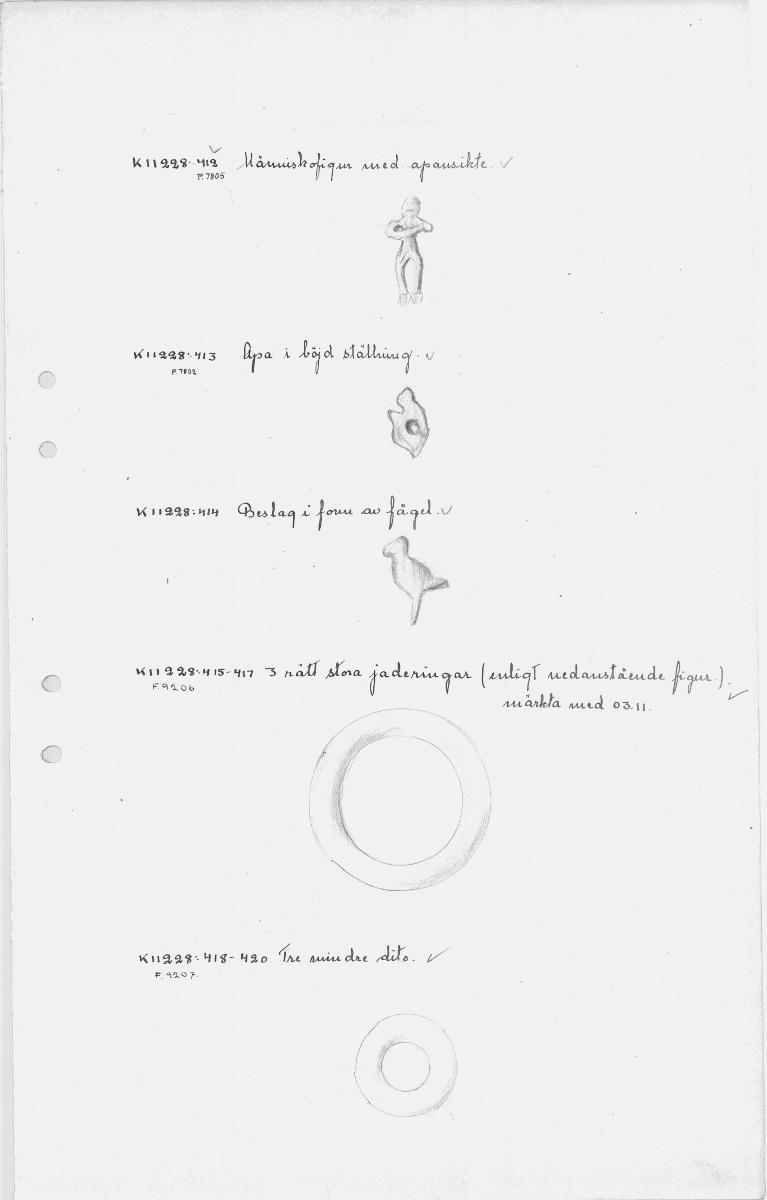 K11228:412 Människofigur med apansikte.
F.7805
K11228:413 Apa i böjd ställning.
F.7802
K11228:414 Beslag i form av fågel.
K11228:415-417 3 rätt stora jaderingar (enligt nedanstående figur.).
F.9206
märkta med 03.11.
K11228:418-420 Tre mindre dito.
F.9207.